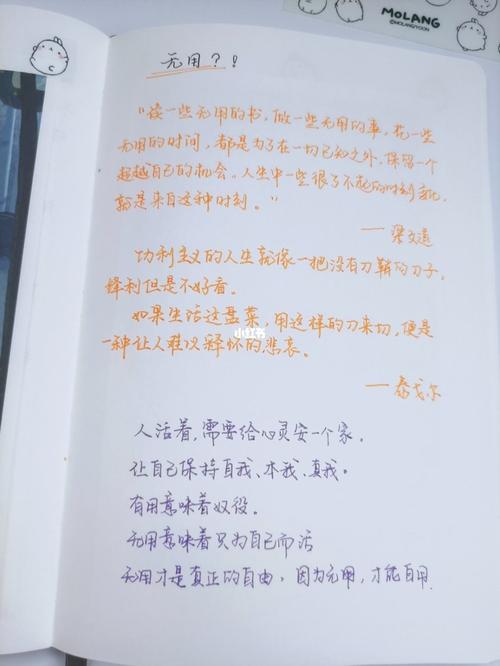 MOLANG
@MOLANGTOON
无用？！
"读一些无用的书，做一些无用的事，花一些
无用的时间，都是为了在一切已知之外，保留一个
超越自己的机会。人生中一些很了不起的时刻变化，
就是来自这种时刻。"
— 梁文道
功利主义的人生就像一把没有刀鞘的刀子，
锋利但是不好看。
如果生活这盘菜，用这样的刀来切，便是
一种让人难以释怀的悲哀。
— 泰戈尔
小红书
人活着，需要给心灵安一个家。
让自己保持自我、本我、真我。
有用意味着奴役。
无用意味着只为自己而活
无用才是真正的自由，因为无用，才能自用.